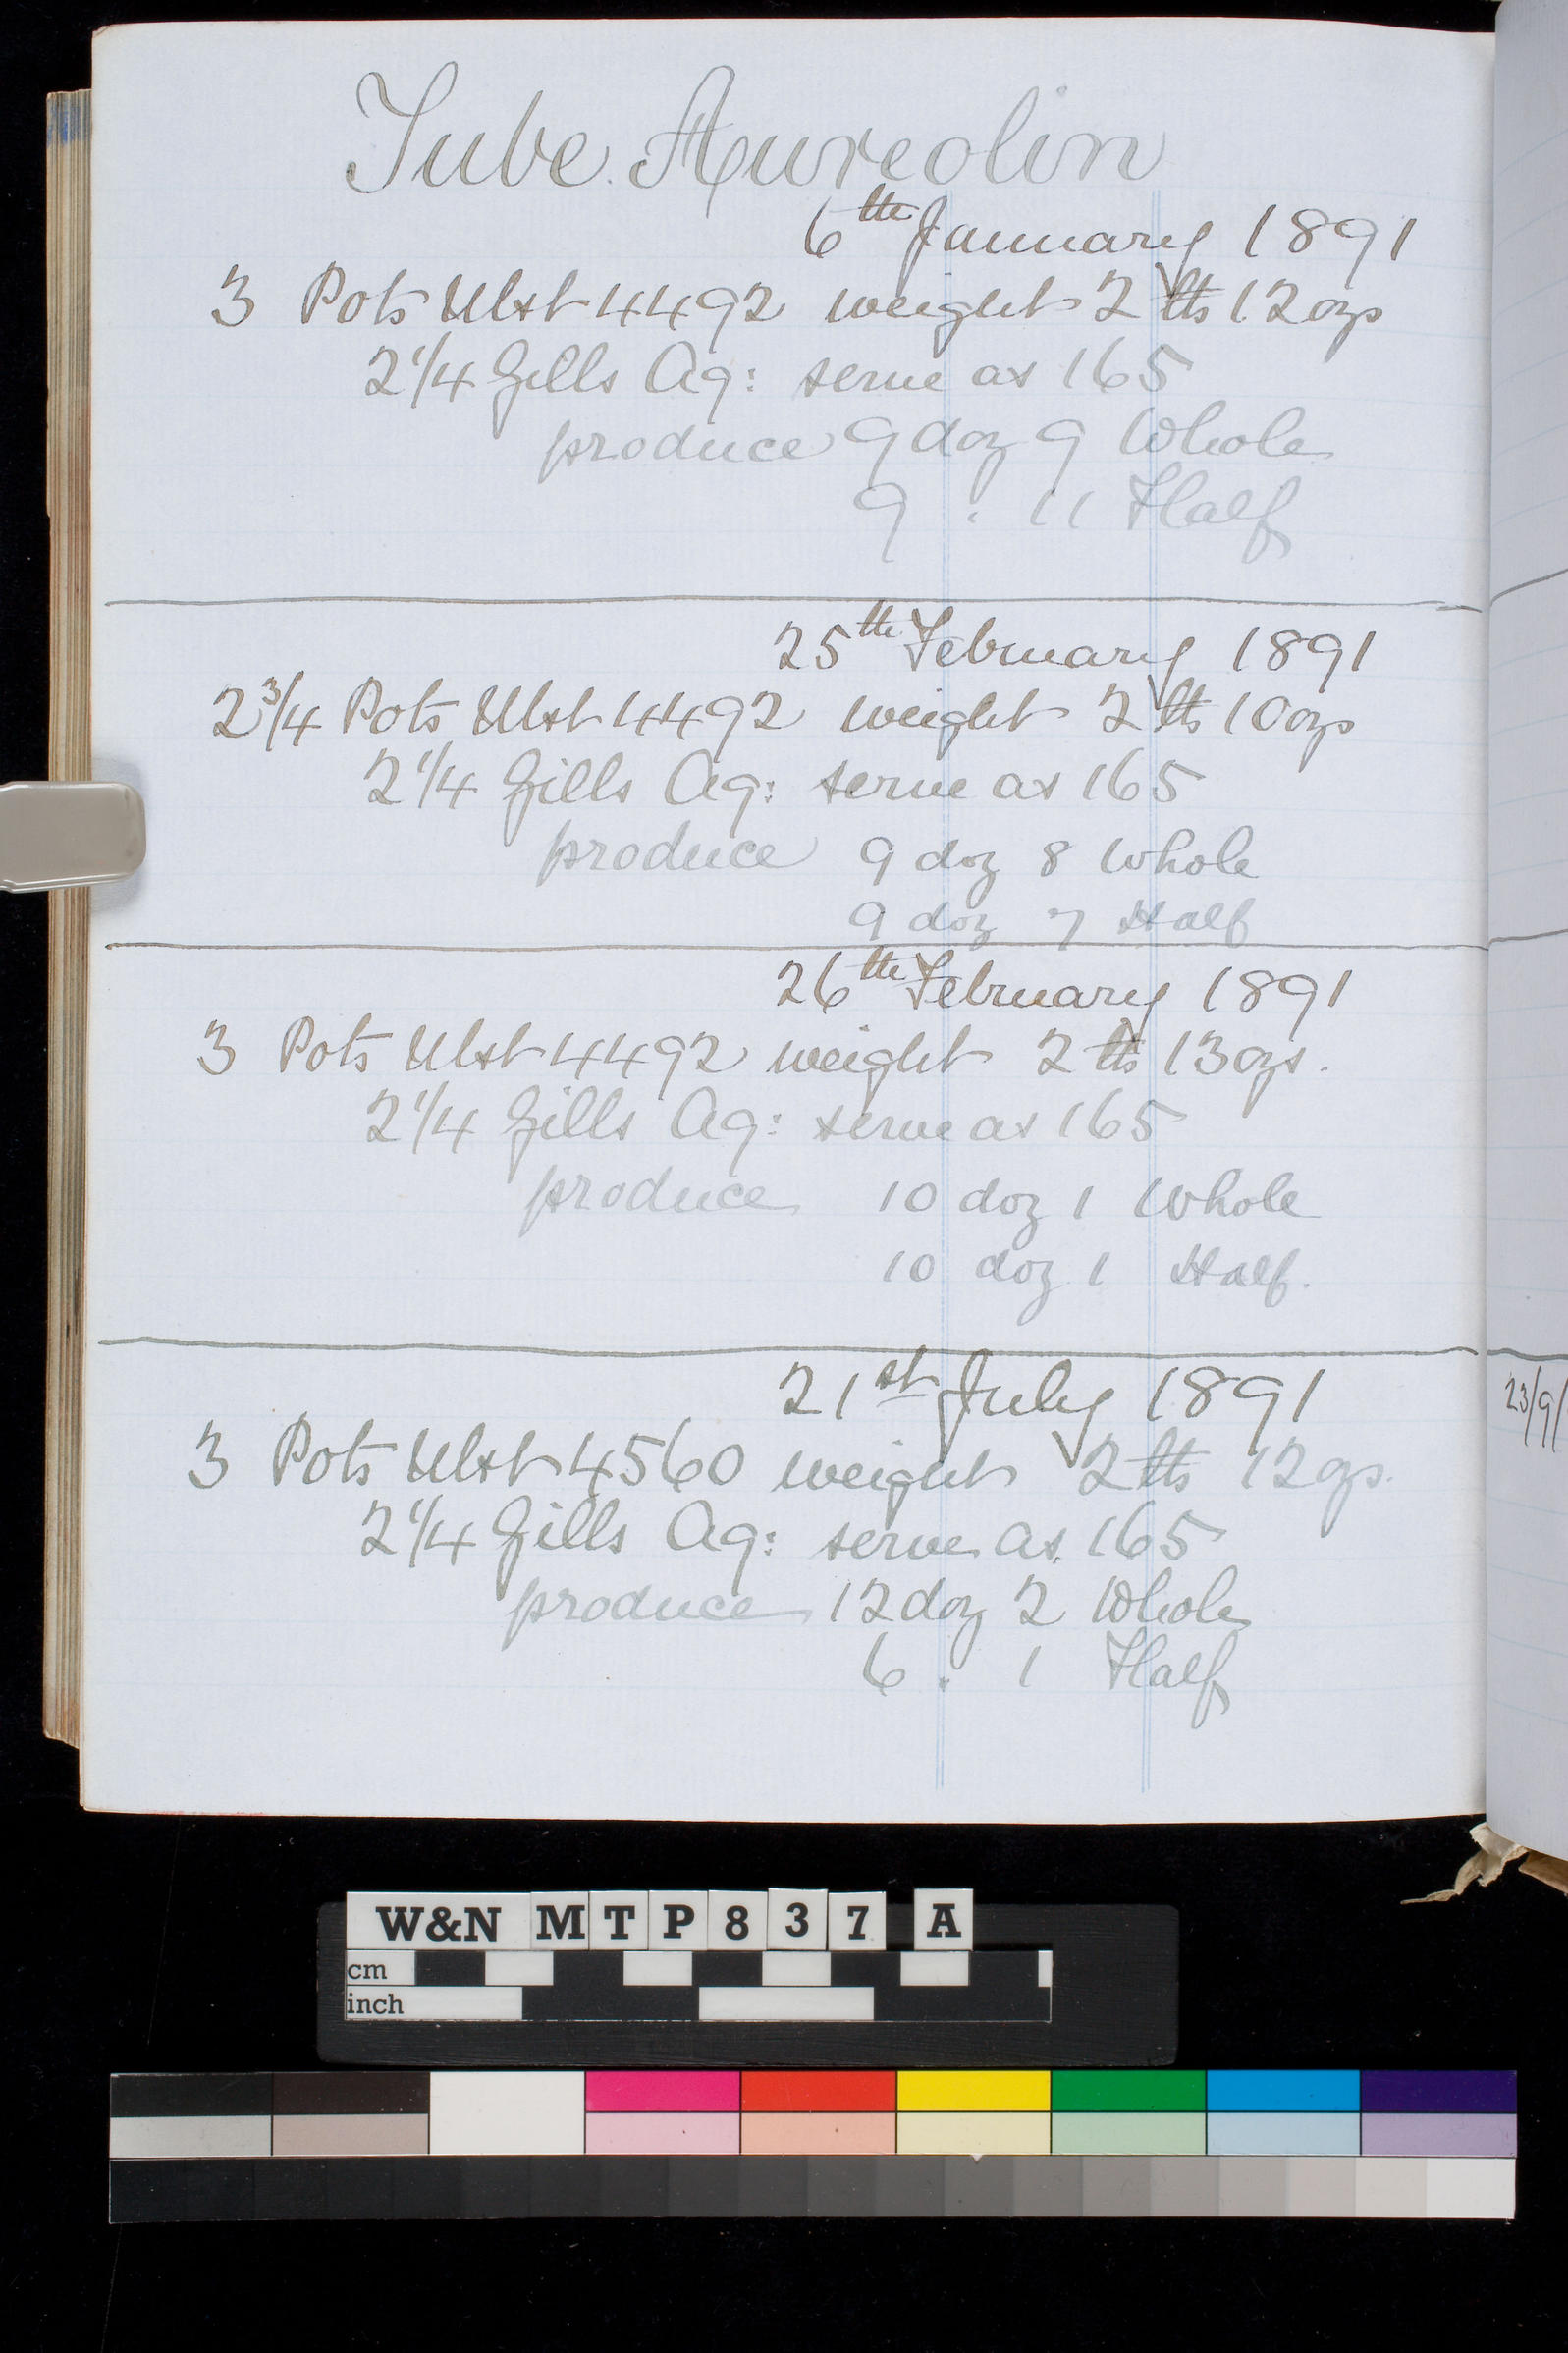 Tube Aureolin
6th January 1891
3 Pots Ulst 4492 weight 2 lbs 12ozs
2 1/4 Gills Aq: serve as 165
produce 9 doz 9 Whole
9 . 11 Half
25th February 1891
2 3/4 Pots Ulst 4492 weight 2 lbs 10ozs
2 1/4 Gills Aq: serve as 165
produce 9 doz 8 Whole
9 doz 7 Half
26th February 1891
3 Pots Ulst 4492 weight 2 lbs 13ozs.
2 1/4 Gills Aq: serve as 165
produce 10 doz 1 Whole
10 doz 1 Half.
21st July 1891
3 Pots Ulst 4560 weight 2 lbs 12ozs.
2 1/4 Gills Aq: serve as 165
produce 12 doz 2 Whole
6 . 1 Half
23/9/
W&N MTP837 A
cm
inch